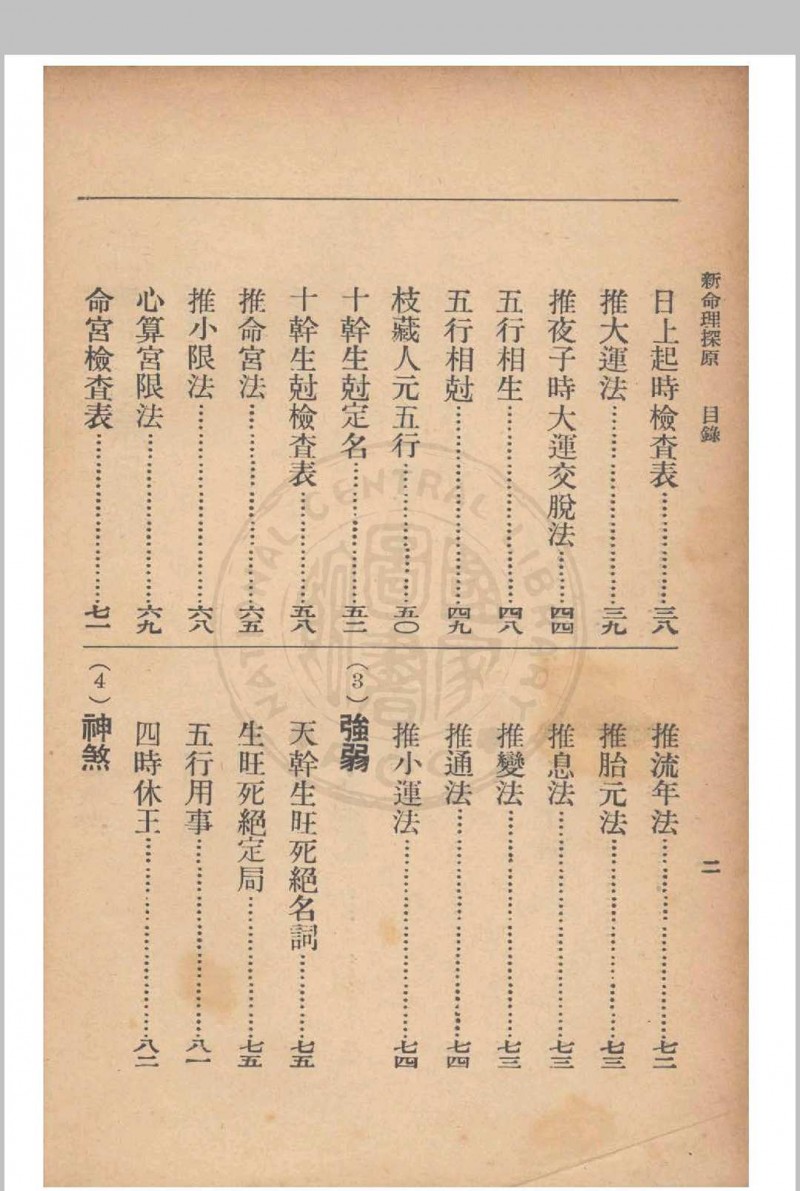 新命理探原　目錄　二
日上起時檢查表…………三八
推大運法…………三九
推夜子時大運交脫法…………四四
五行相生…………四八
五行相尅…………四九
枝藏人元五行…………五〇
十幹生尅定名…………五二
十幹生尅檢查表…………五八
推命宮法…………六五
推小限法…………六八
心算宮限法…………六九
命宮檢查表…………七一
推流年法…………七二
推胎元法…………七三
推息法…………七三
推變法…………七三
推通法…………七四
推小運法…………七四
（3）強弱
天幹生旺死絕名詞…………七五
生旺死絕定局…………七五
五行用事…………八一
四時休王…………八二
（4）神煞
NATIONAL CENTRAL LIBRARY
國家圖書館